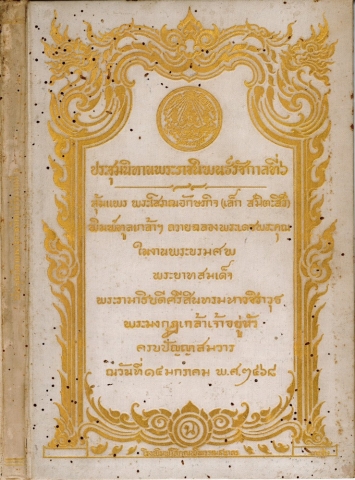 ประชุมนิทานพระราชนิพนธ์รัชกาลที่๖
ชุ่มแพร พระโสภณอักษรกิจ (เล็ก สมิตะสิริ)
พิมพ์ทูลเกล้าฯ ถวายฉลองพระเดชพระคุณ
ในงานพระบรมศพ
พระบาทสมเด็จ
พระรามาธิบดีศรีสินทรมหาวชิราวุธ
พระมงกุฎเกล้าเจ้าอยู่หัว
ครบปัญญาสมวาร
ณวันที่๑๔มกราคม พ.ศ.๒๔๖๘